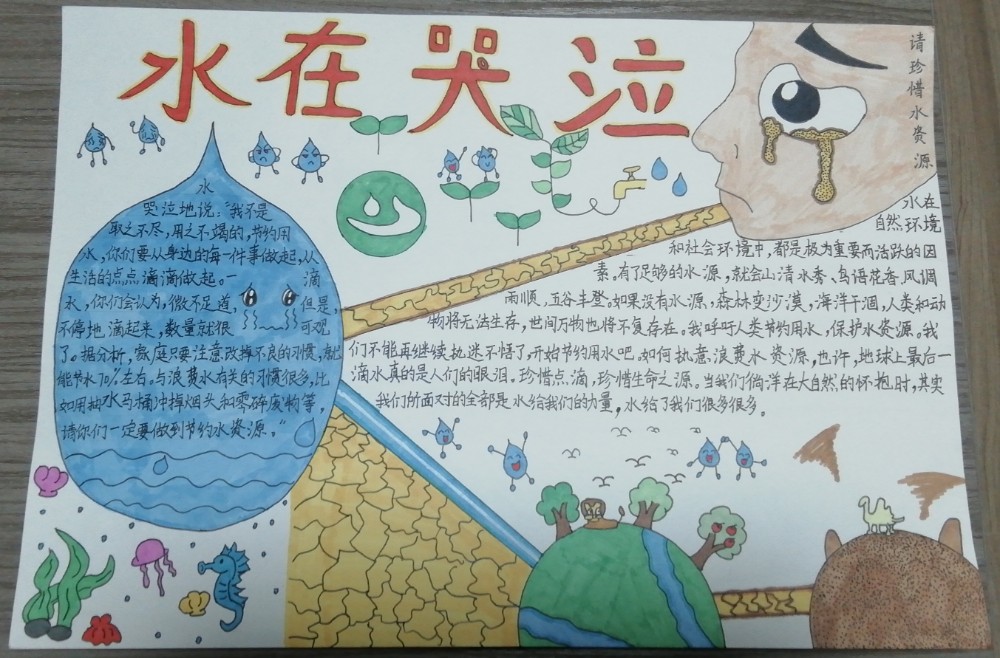 水在哭泣
请珍惜水资源
水
哭泣地说："我不是
取之不尽，用之不竭的，节约用
水，你们要从身边的每一件事做起，从
生活的点点滴滴做起。一 滴
水，你们会认为，微不足道， 但是，
不停地滴起来，数量就很 可观
了。据分析，家庭只要注意改掉不良的习惯，就
能节水70%左右。与浪费水有关的习惯很多，比
如用抽水马桶冲掉烟头和零碎废物等，
请你们一定要做到节约水资源。"
水在
自然环境
和社会环境中，都是极为重要而活跃的因
素。有了足够的水源，就会山清水秀、鸟语花香、风调
雨顺，五谷丰登。如果没有水源，森林变沙漠，海洋干涸，人类和动
物将无法生存，世间万物也将不复存在。我呼吁人类节约用水，保护水资源。我
们不能再继续执迷不悟了，开始节约用水吧。如何执意浪费水资源，也许，地球上最后一
滴水真的是人们的眼泪。珍惜点滴，珍惜生命之源。当我们倘洋在大自然的怀抱时，其实
我们所面对的全部是水给我们的力量，水给了我们很多很多。